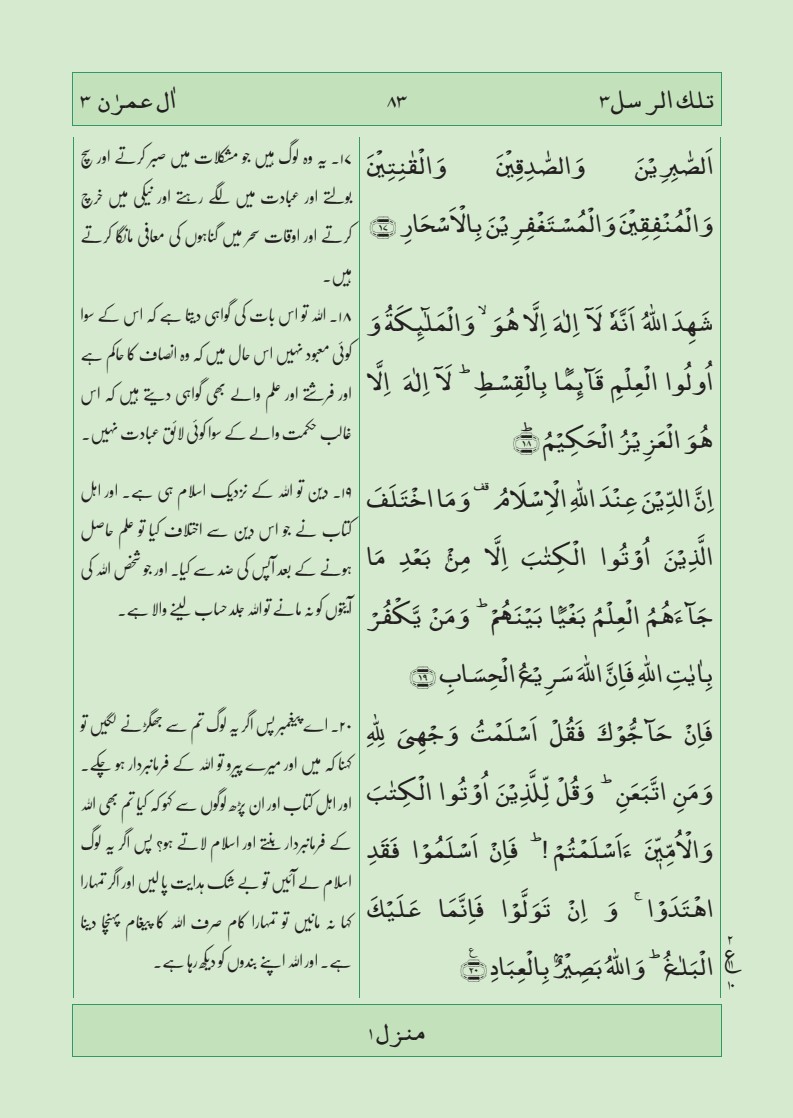 تلك الرسل٣
٨٣
اٰل عمرٰن ٣
اَلصّٰبِرِيْنَ وَالصّٰدِقِيْنَ وَالْقٰنِتِيْنَ
وَالْمُنْفِقِيْنَ وَالْمُسْتَغْفِرِيْنَ بِالْاَسْحَارِ ١٧
شَهِدَ اللّٰهُ اَنَّهٗ لَآ اِلٰهَ اِلَّا هُوَ ۙ وَالْمَلٰٓئِكَةُ وَ
اُولُوا الْعِلْمِ قَآئِمًۢا بِالْقِسْطِ ؕ لَآ اِلٰهَ اِلَّا
هُوَ الْعَزِيْزُ الْحَكِيْمُ ؕ ١٨
اِنَّ الدِّيْنَ عِنْدَ اللّٰهِ الْاِسْلَامُ ۟ قف وَمَا اخْتَلَفَ
الَّذِيْنَ اُوْتُوا الْكِتٰبَ اِلَّا مِنْۢ بَعْدِ مَا
جَآءَهُمُ الْعِلْمُ بَغْيًۢا بَيْنَهُمْ ؕ وَمَنْ يَّكْفُرْ
بِاٰيٰتِ اللّٰهِ فَاِنَّ اللّٰهَ سَرِيْعُ الْحِسَابِ ١٩
فَاِنْ حَآجُّوْكَ فَقُلْ اَسْلَمْتُ وَجْهِيَ لِلّٰهِ
وَمَنِ اتَّبَعَنِ ؕ وَقُلْ لِّلَّذِيْنَ اُوْتُوا الْكِتٰبَ
وَالْاُمِّيّٖنَ ءَاَسْلَمْتُمْ ! ؕ فَاِنْ اَسْلَمُوْا فَقَدِ
اهْتَدَوْا ۚ وَ اِنْ تَوَلَّوْا فَاِنَّمَا عَلَيْكَ
الْبَلٰغُ ؕ وَاللّٰهُ بَصِيْرٌۢ بِالْعِبَادِ ع ٢٠
٢
ع
١٠
١٧۔ یہ وہ لوگ ہیں جو مشکلات میں صبر کرتے اور سچ
بولتے اور عبادت میں لگے رہتے اور نیکی میں خرچ
کرتے اور اوقات سحر میں گناہوں کی معافی مانگا کرتے
ہیں۔
١٨۔ اللہ تو اس بات کی گواہی دیتا ہے کہ اس کے سوا
کوئی معبود نہیں اس حال میں کہ وہ انصاف کا حاکم ہے
اور فرشتے اور علم والے بھی گواہی دیتے ہیں کہ اس
غالب حکمت والے کے سوا کوئی لائق عبادت نہیں۔
١٩۔ دین تو اللہ کے نزدیک اسلام ہی ہے۔ اور اہل
کتاب نے جو اس دین سے اختلاف کیا تو علم حاصل
ہونے کے بعد آپس کی ضد سے کیا۔ اور جو شخص اللہ کی
آیتوں کو نہ مانے تو اللہ جلد حساب لینے والا ہے۔
٢٠۔ اے پیغمبر پس اگر یہ لوگ تم سے جھگڑنے لگیں تو
کہنا کہ میں اور میرے پیرو تو اللہ کے فرمانبردار ہو چکے۔
اور اہل کتاب اور ان پڑھ لوگوں سے کہو کہ کیا تم بھی اللہ
کے فرمانبردار بنتے اور اسلام لاتے ہو؟ پس اگر یہ لوگ
اسلام لے آئیں تو بے شک ہدایت پالیں اور اگر تمہارا
کہا نہ مانیں تو تمہارا کام صرف اللہ کا پیغام پہنچا دینا
ہے۔ اور اللہ اپنے بندوں کو دیکھ رہا ہے۔
منزل١